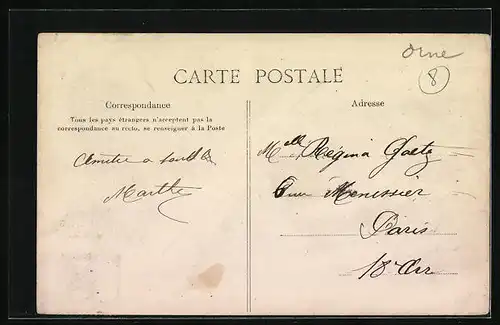 Orne
8
CARTE POSTALE
Correspondance
Adresse
Tous les pays étrangers n'acceptent pas la
correspondance au recto, se renseigner à la Poste
Amitié a
Marthe
Melle Régina Goetz
6 rue Menissier
Paris
18e Arr